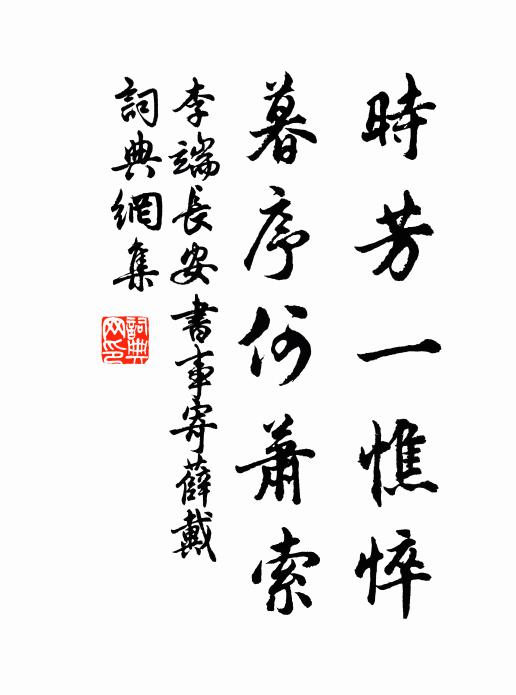 時芳一憔悴
暮序何蕭索
李端長安書事寄薛戴
詞典網集
詞典網印